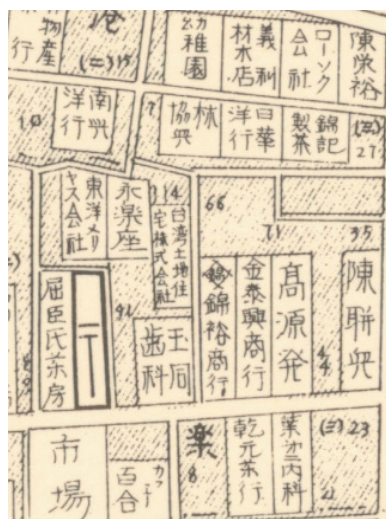 物産
行
港
(二)15
幼
稚
園
義利
材木店
ローソク
会社
陳榮裕
10
南興
洋行
7
林
協興
日華
洋行
錦記
製茶
(三)
27
東洋メリ
ヤス会社
永樂座
114
台湾土地住
宅株式会社
66
71
35
屈臣氏茶房
92
玉同
歯科
錦裕商行
金泰興商行
高源発
44
陳聯興
市場
カフェー
百合
楽
8
乾元茶行
葉 内科
(三)23